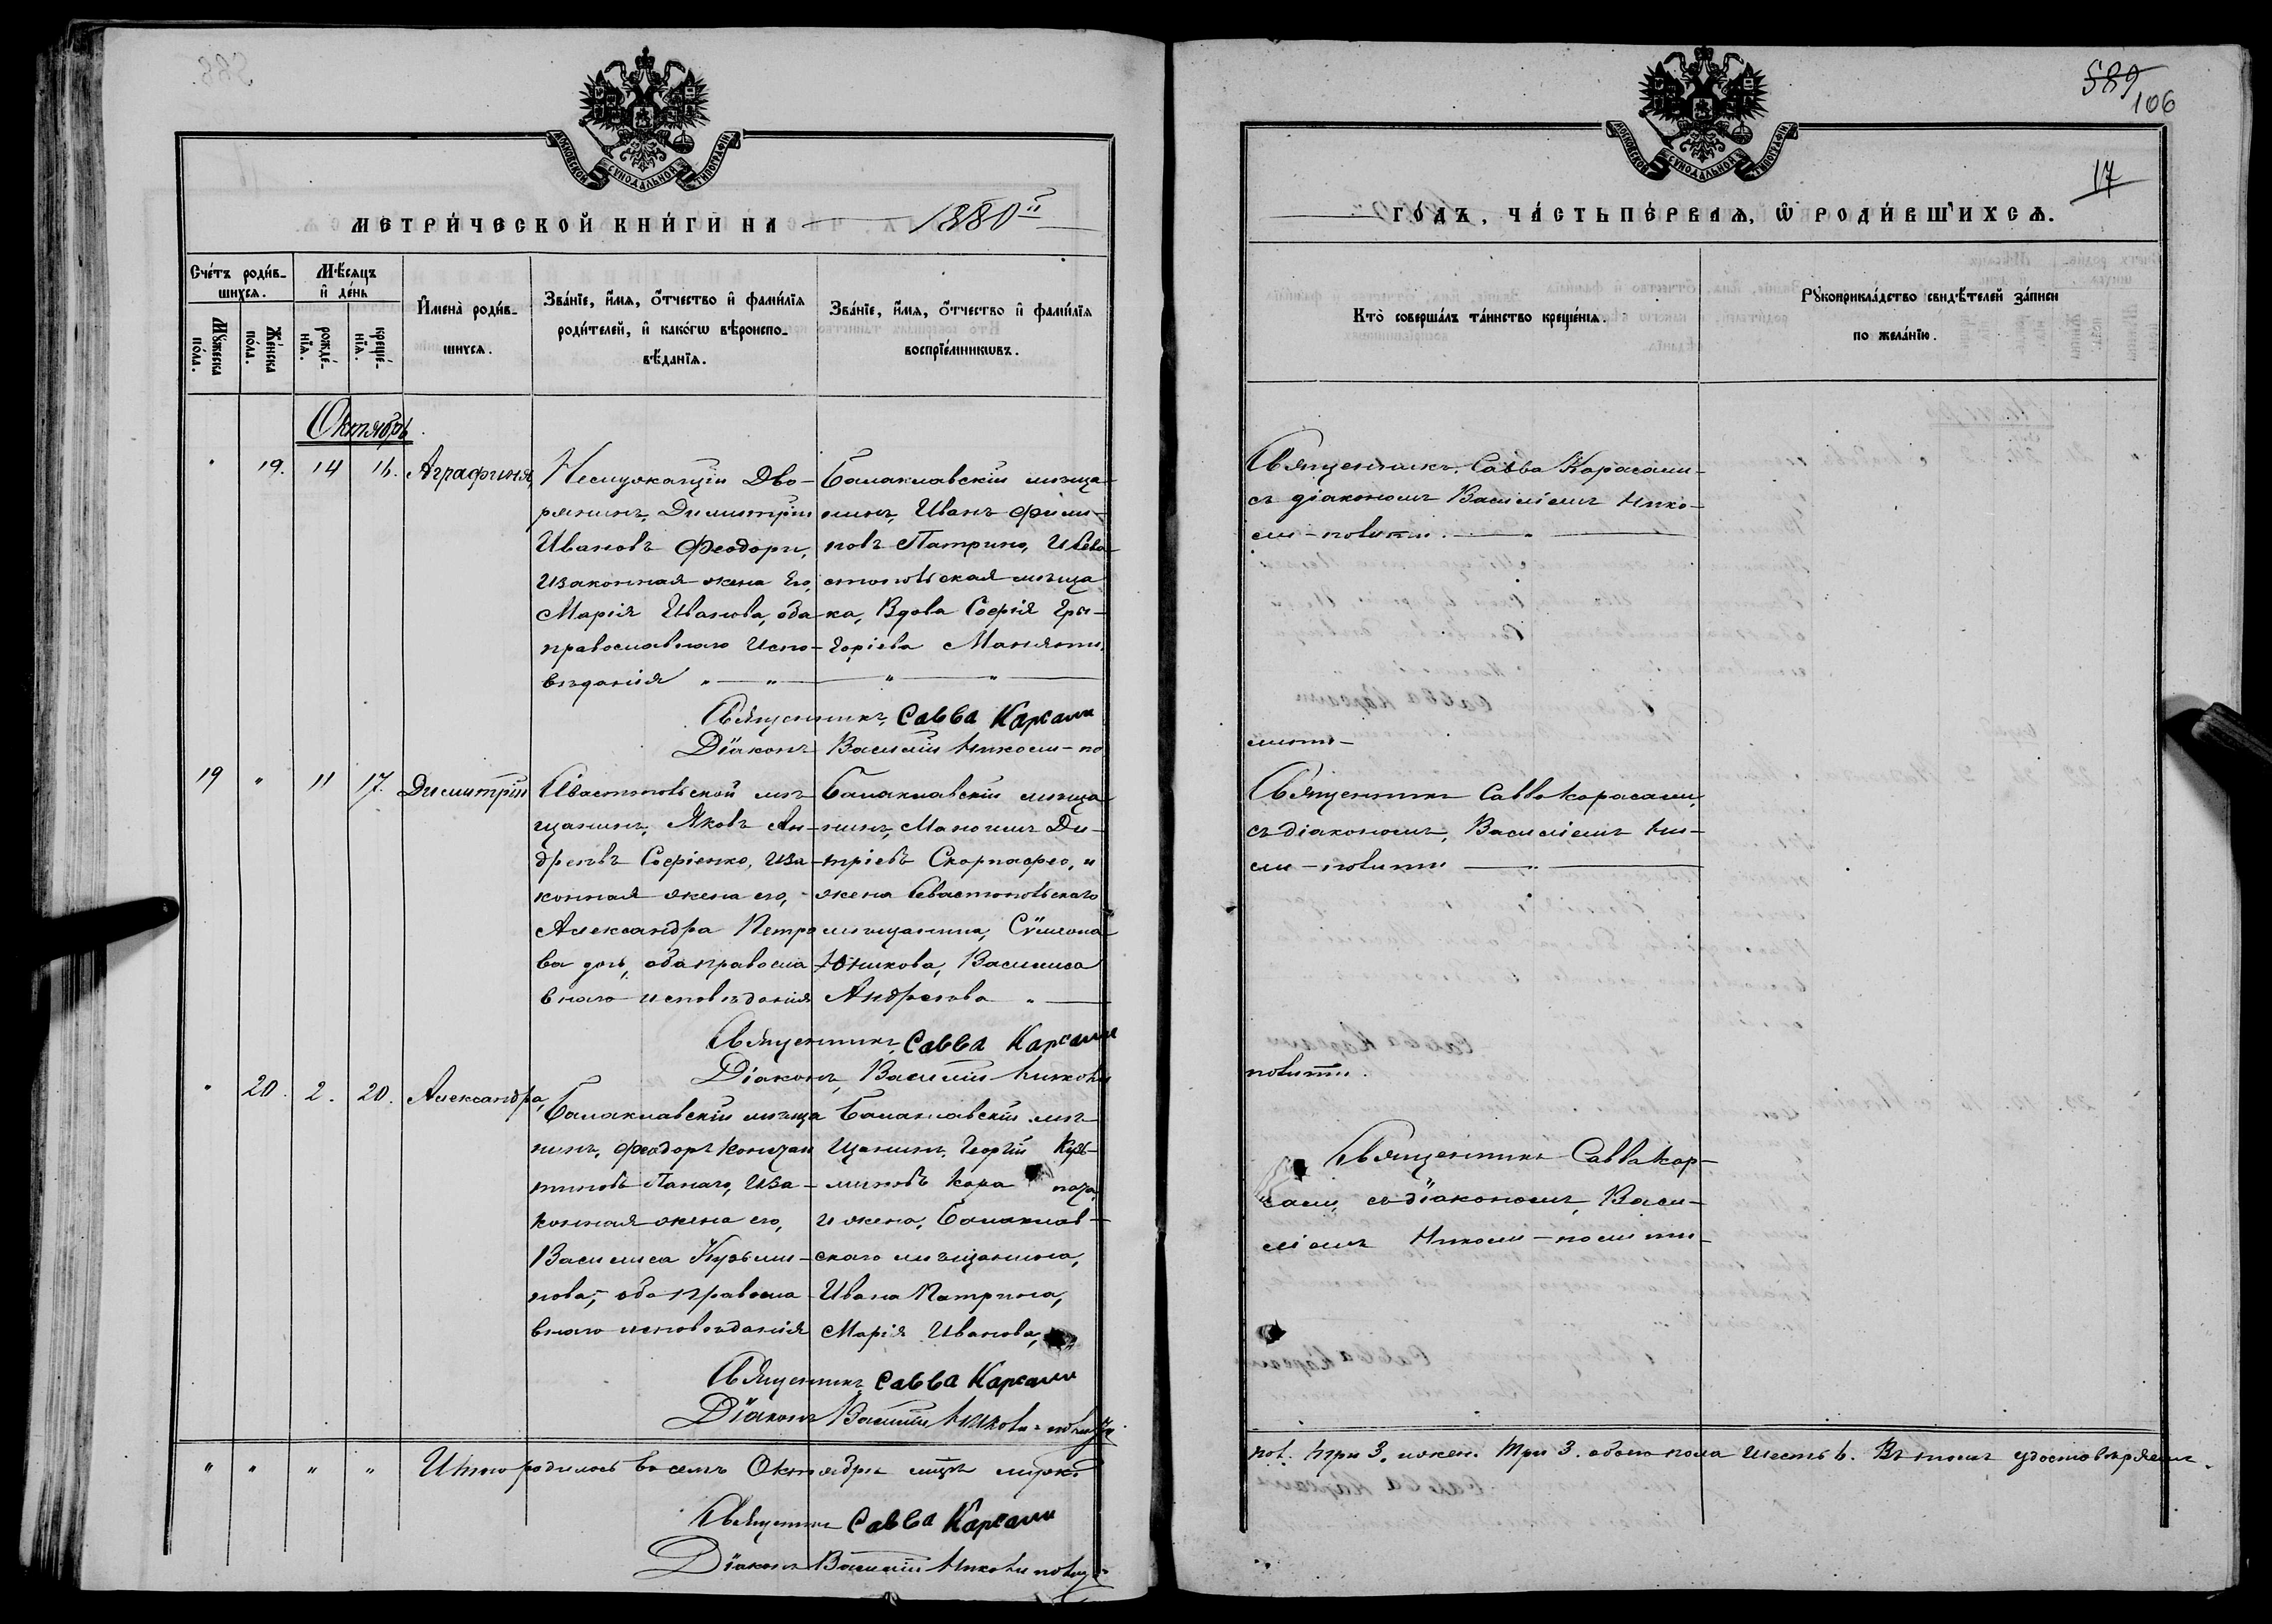 МОСКОВСКОЙ СѴНОДАЛЬНОЙ ТИПОГРАФІИ
МЕТРИ́ЧЕСКОЙ КНИ́ГИ НА 1880й
Сче́тъ роди́в-
шихсѧ.
Мꙋ́жеска по́ла.
Же́нска по́ла.
Мѣ́сѧцъ
и҆ де́нь
рожде́-
нїѧ.
креще́-
нїѧ.
И҆мена̀ роди́в-
шихсѧ.
Зва́нїе, и҆́мѧ, ѻ҆́тчество и҆ фами́лїѧ
роди́телей, и҆ како́гѡ вѣроиспо-
вѣ́данїѧ.
Зва́нїе, и҆́мѧ, ѻ҆́тчество и҆ фами́лїѧ
воспрїе́мникѡвъ.
Октябрь
" 19. 14 16. Аграфиня,
Неслужащій Дво-
рянинъ, Димитрій
Ивановъ Феодори,
Изаконная жена Его,
Марія Иванова, оба
православнаго Испо-
вѣданія " — "
Балаклавскій мѣща
нинъ, Иванъ Фили-
повъ Патрино, И Сева
стопольская мѣща
ка, Вдова Софія Гри-
горіева Маняти
Священникъ, Савва Карсали
Діаконъ Василій Николи-по
19 " 11 17. Димитрій
Севастопольской мѣ
щанинъ, Яковъ Ан-
дреевъ Софіенко, Иза-
конная жена его,
Александра Петро
ва дочь, оба правосла
внаго исповѣданія
Балаклавскій мѣща
нинъ, Маноилъ Ди-
тріевъ Скорпафео, и
жена Севастопольскаго
мѣщанина, Сѵмеона
Юникова, Василиса
Андреева "
Священникъ, Савва Карсали
Діаконъ, Василій Николи
" 20. 2. 20. Александра,
Балаклавскій мѣща
нинъ, Феодоръ Констан
тиновъ Панаго, Иза-
конная жена его,
Василиса Кузьми-
нова, оба правосла
внаго исповѣданія
Балаклавскій мѣ
щанинъ, Георгій Кузь-
миновъ
и жена, Балаклав-
скаго мѣщанина,
Ивана Патрина,
Марія Иванова,
Священникъ, Савва Карсали
Діаконъ Василій Николи-
" " " " Итого родилось въ семъ Октябрѣ мѣсѣ мужс
Священникъ Савва Карсали
Діаконъ Василій Николи
589
106
17
МОСКОВСКОЙ СѴНОДАЛЬНОЙ ТИПОГРАФІИ
ГО́ДЪ, ЧА́СТЬ ПЕ́РВАѦ, Ѡ҆ РОДИ́ВШИХСѦ.
Кто̀ соверша́лъ та́инство креще́нїѧ.
Рꙋкоприкла́дство свидѣ́телей за́писи
по жела́нїю.
Священникъ, Савва Карасали-
съ діакономъ Василіемъ Нико-
ли-полити. — " —
лити-
Священникъ Савва Карасали,
съ діакономъ, Василіемъ Ни-
ли-полити — " —
полити.
Священникъ Савва Кар-
сали, съ діакономъ, Васи-
ліемъ Николи-полити-
пол. три 3. женс. три 3. обоего пола шесть 6. Въ томъ удостовѣряемъ.